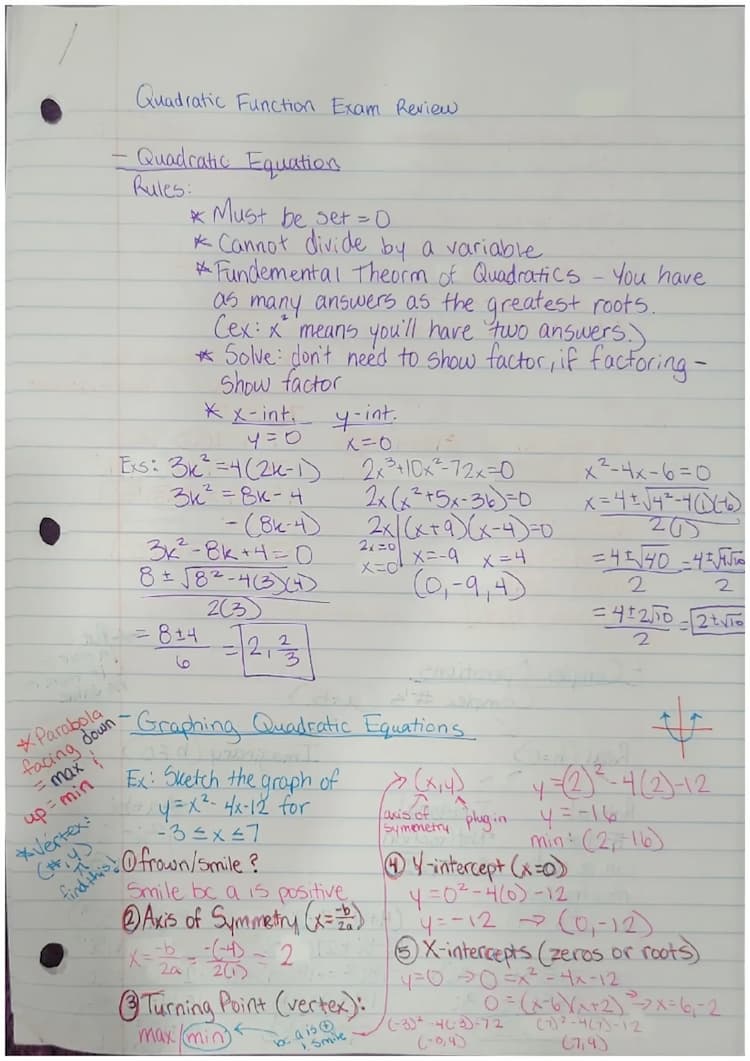 Quadratic Function Exam Review
- Quadratic Equation
Rules:
* Must be set = 0
* Cannot divide by a variable
* Fundemental Theorm of Quadratics - You have
as many answers as the greatest roots.
(ex: x² means you'll have two answers.)
* Solve: don't need to show factor, if factoring -
show factor
* x-int. y-int.
y=0 x=0
Exs: 3k²=4(2k-1)
3k²=8k-4
-(8k-4)
3k²-8k+4=0
8±√8²-4(3)(4)
2(3)
= 8±4/6 = 2, 2/3
2x³+10x²-72x=0
2x(x²+5x-36)=0
2x|(x+9)(x-4)=0
2x=0 x=-9 x=4
x=0
(0,-9,4)
x²-4x-6=0
x=4±√4²-4(1)(-6)
2(1)
=4±√40/2 =4±√4√10/2
=4±2√10/2 =2±√10
* Parabola
facing down
= max
up = min
* Vertex:
(#, y)
find this!
- Graphing Quadratic Equations
Ex: Sketch the graph of
y=x²-4x-12 for
-3≤x≤7
① frown/smile?
Smile bc a is positive
② Axis of Symmetry (x=-b/2a)
x=-b/2a = -(-4)/2(1) = 2
③ Turning Point (vertex):
max/min
bc a is +
, smile
→(x,y)
axis of
symmetry plug in
y=(2)²-4(2)-12
y=-16
min: (2,-16)
④ Y-intercept (x=0)
y=0²-4(0)-12
y=-12 → (0,-12)
⑤ X-intercepts (zeros or roots)
y=0 → 0=x²-4x-12
0=(x-6)(x+2) → x=6,-2
(7)²-4(7)-12
(7,9)